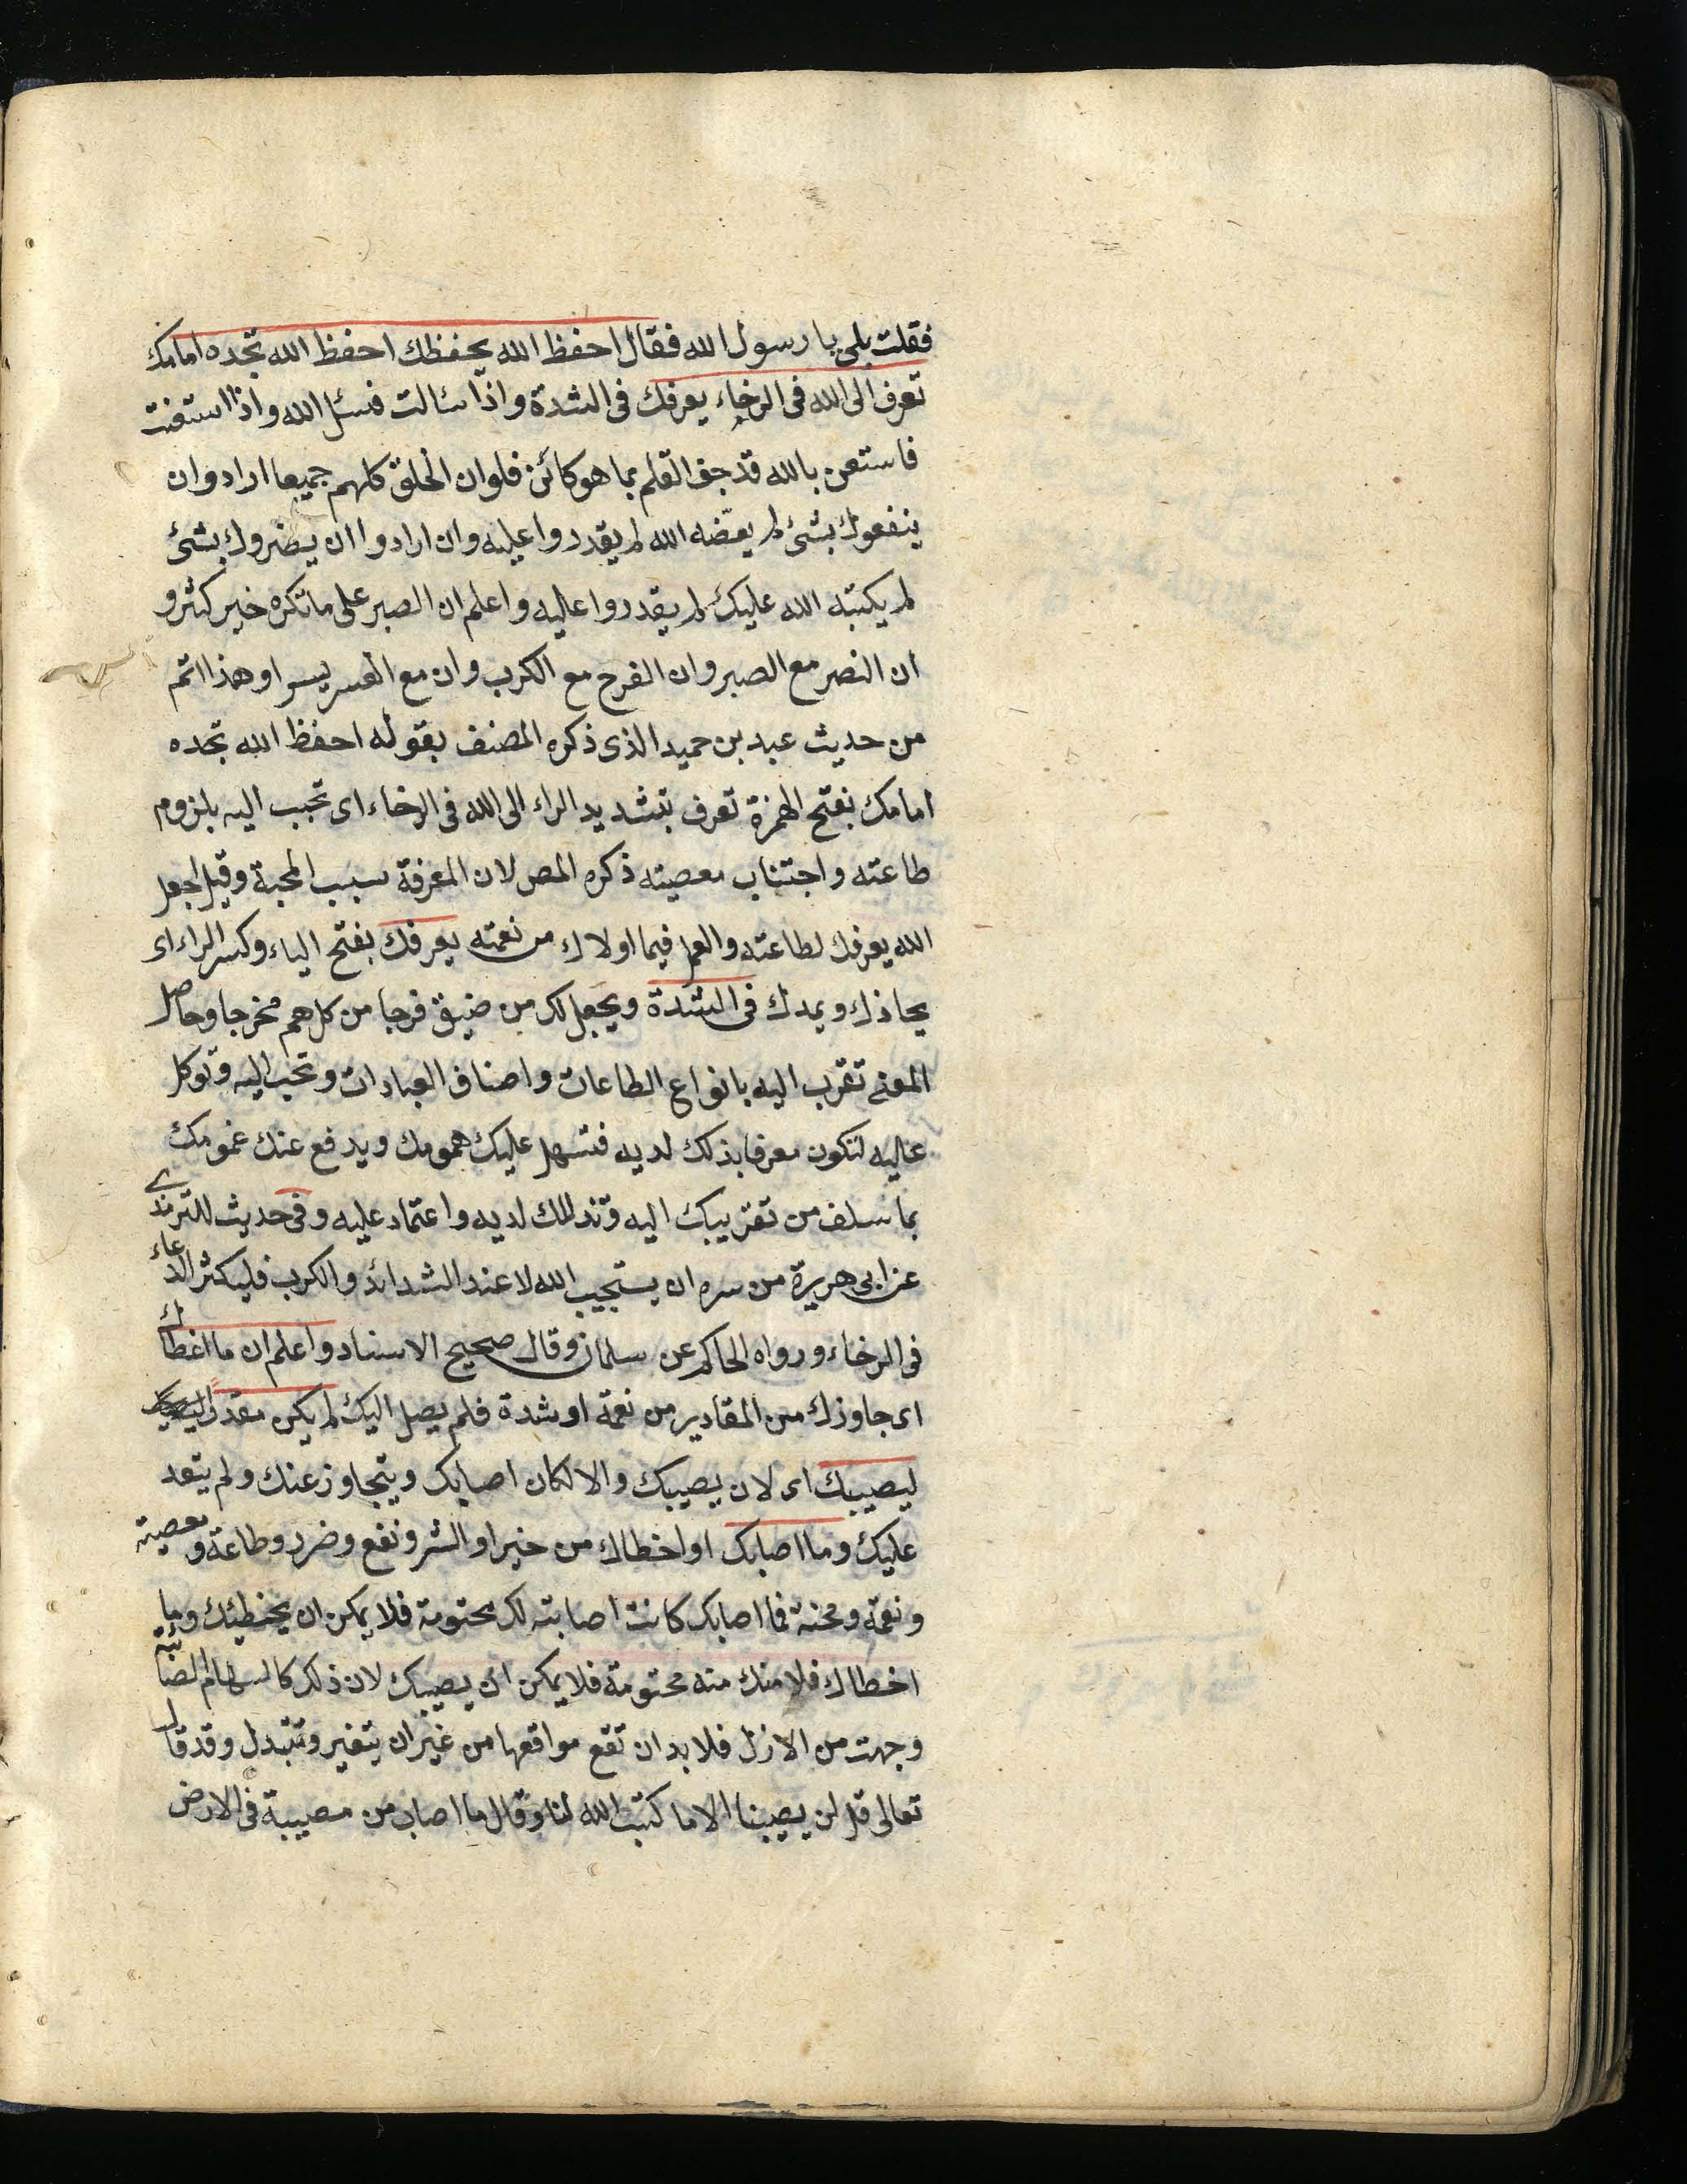 فقلت بلى يا رسول الله فقال احفظ الله يحفظك احفظ الله تجده امامك
تعرف الى الله فى الرخاء يعرفك فى الشدة واذا سالت فسئل الله واذا استعنت
فاستعن بالله قد جف القلم بما هو كائن فلو ان الخلق كلهم جميعا ارادوا ان
ينفعوك بشئ لم يقضه الله لم يقدروا عليه وان ارادوا ان يضروك بشئ
لم يكتبه الله عليك لم يقدروا عليه واعلم ان الصبر على ما تكره خير كثير و
ان النصر مع الصبر وان الفرج مع الكرب وان مع العسر يسرا وهذا اتم
من حديث عبد بن حميد الذى ذكره المصنف بقوله احفظ الله تجده
امامك بفتح الهمزة تعرف بتشديد الراء الى الله فى الرخاء اى تحبب اليه بلزوم
طاعته واجتناب معصيته ذكره المص لان المعرفة سبب المحبة وقيل اجعل
الله يعرفك لطاعته والعمل فيما اولاك من نعمته يعرفك بفتح الياء وكسر الراء اى
يجازك ويمدك فى الشدة ويجعل لك من ضيق فرجا من كل هم مخرجا وحاصل
المعنى تقرب اليه بانواع الطاعات واصناف العبادات وتحبب اليه وتوكل
عليه لتكون معرفا بذلك لديه فتسهل عليك همومك ويدفع عنك غمومك
بما سلف من تقريبك اليه وتذللك لديه واعتماد عليه وفى حديث للترمذى
عن ابى هريرة من سره ان يستجيب الله لا عند الشدائد والكرب فليكثر الدعاء
فى الرخاء ورواه الحاكم عن سلمان وقال صحيح الاسناد واعلم ان ما اخطاك
اى جاوزك من المقادير من نعمة او شدة فلم يصل اليك لم يكن مقدرا
ليصيبك اى لان يصيبك والا لكان اصابك ويتجاوز عنك ولم يتعد
عليك وما اصابك او اخطاك من خير او الشر ونفع وضرر وطاعة ومعصية
ونعمة ومحنة فما اصابك كانت اصابته لك محتومة فلا يمكن ان يخطئك وما
اخطاك فلا منك منه محتومة فلا يمكن ان يصيبك لان ذلك كالسهام الصائبة
وجهت من الازل فلا بد ان تقع مواقعها من غير ان يتغير وتتبدل وقد قال
تعالى قل لن يصيبنا الا ما كتب الله لنا وقال ما اصاب من مصيبة فى الارض